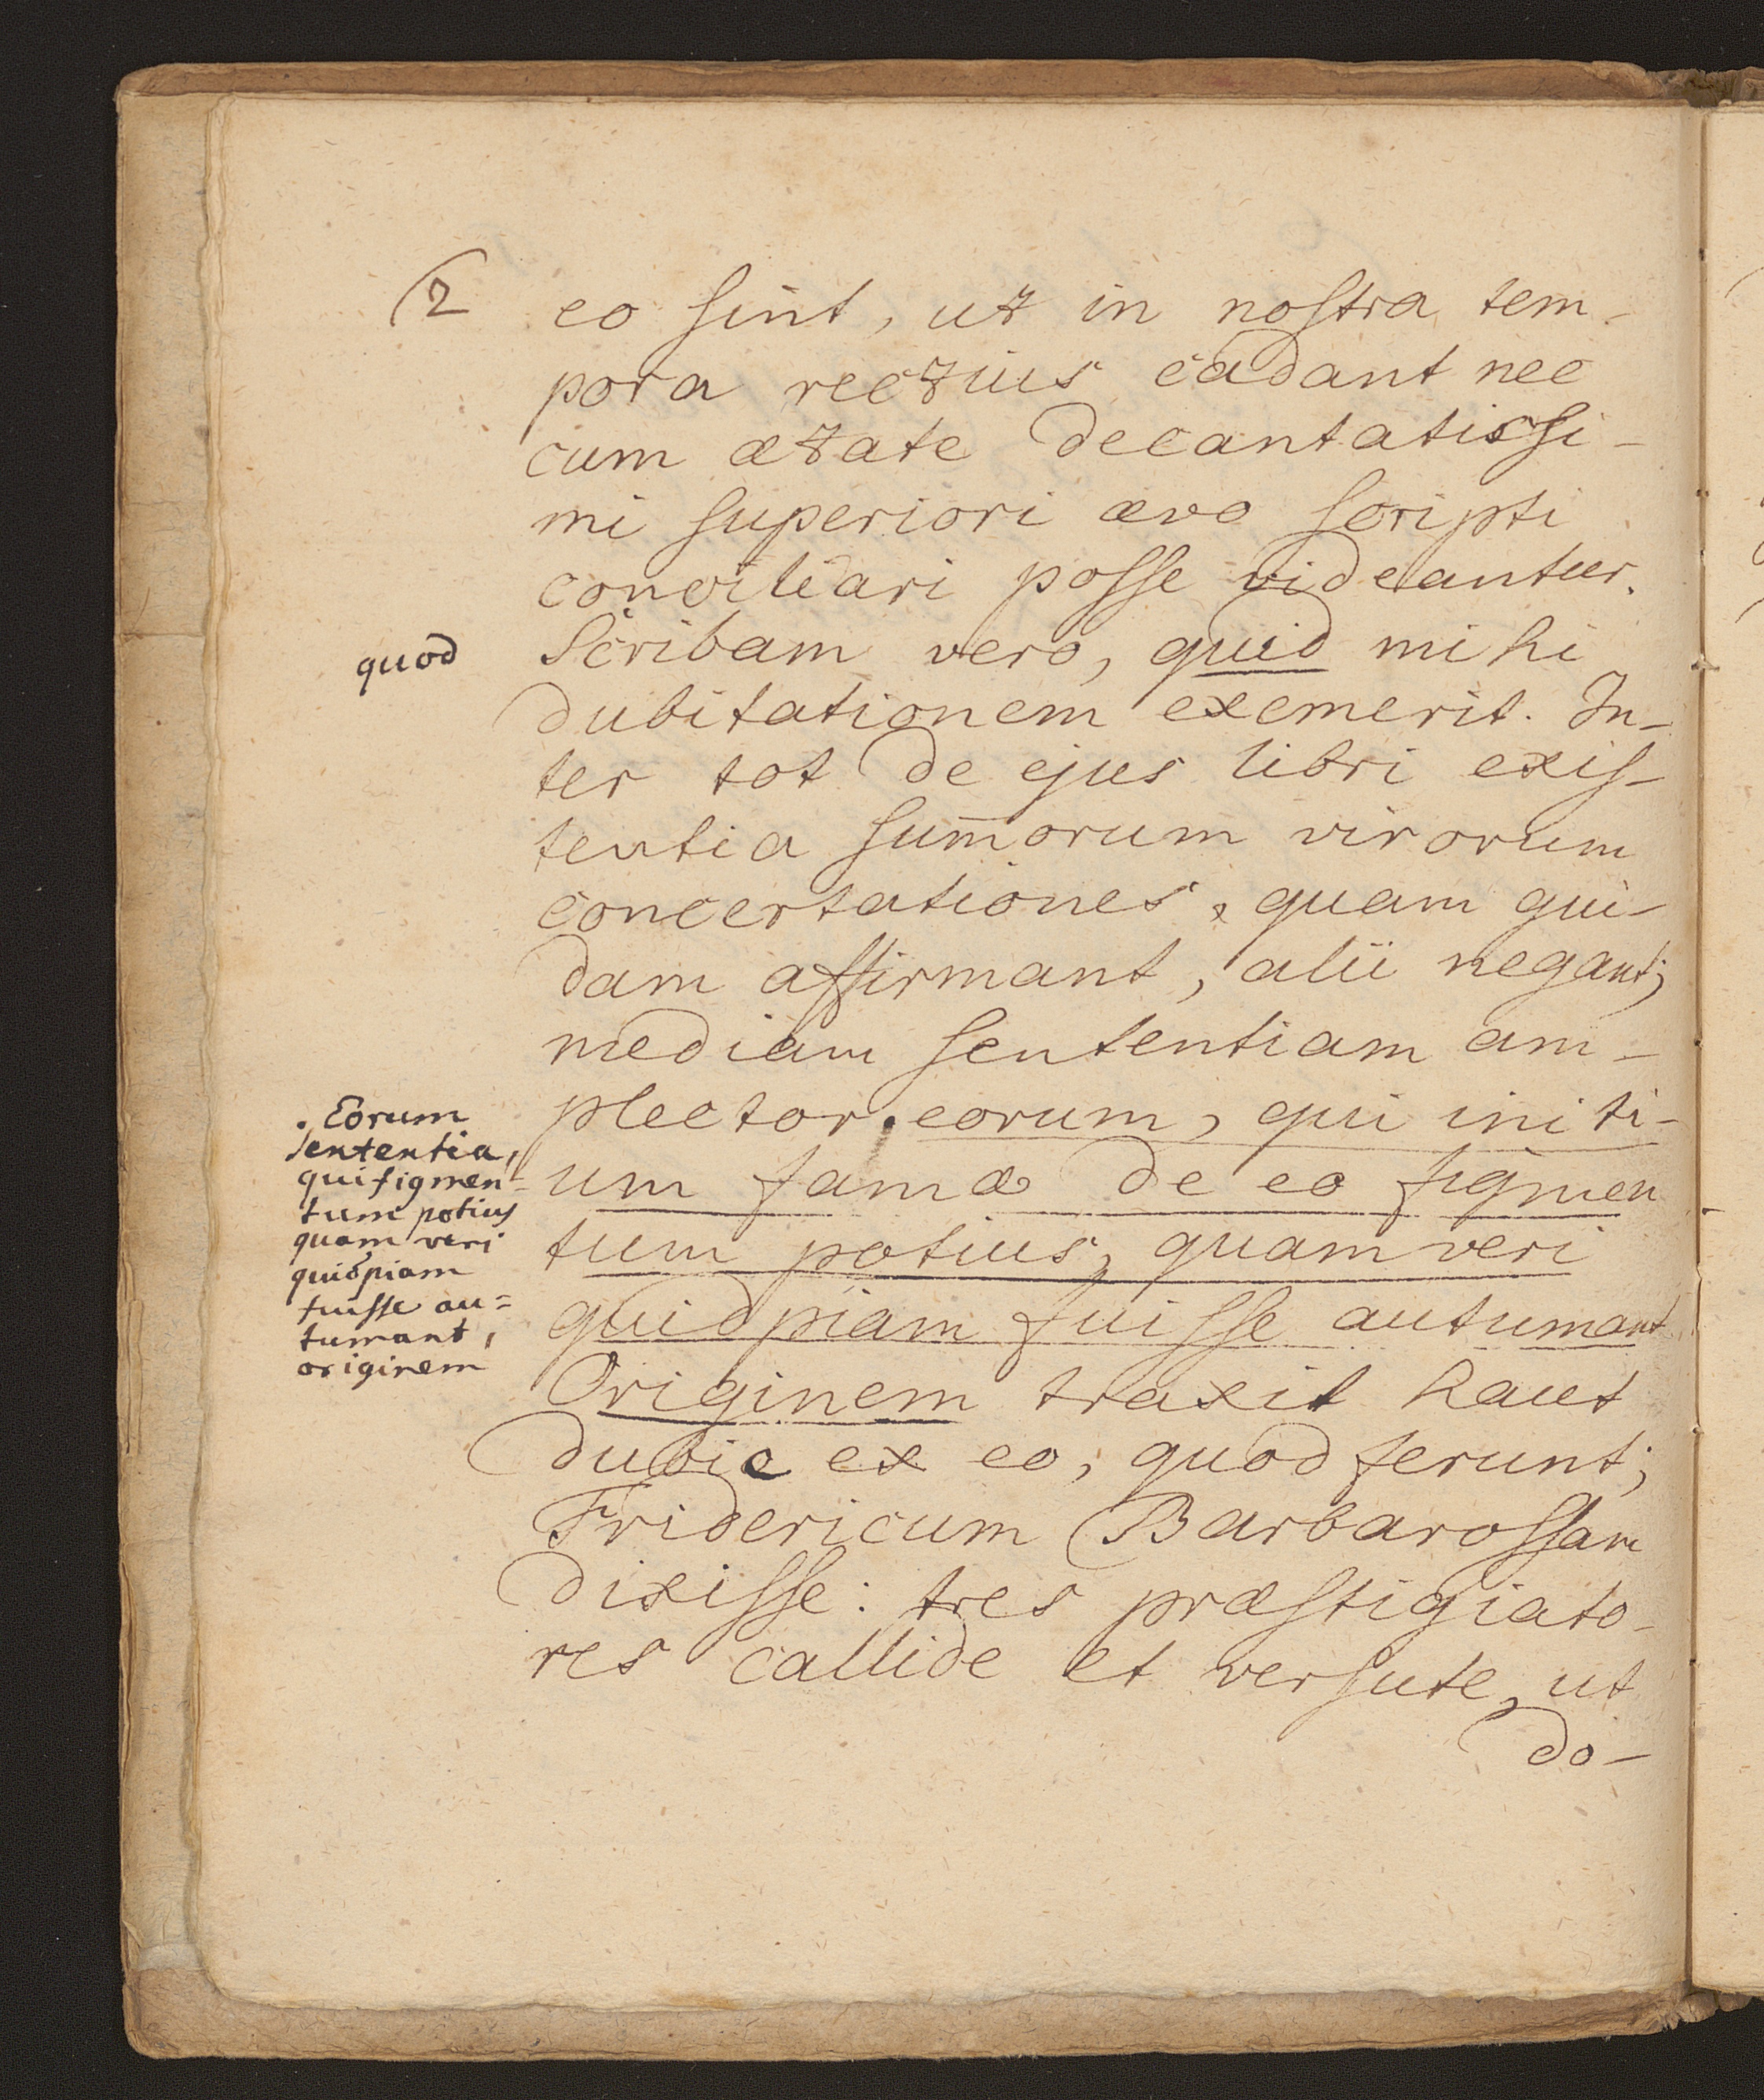 (2
eo sint, ut in nostra tem-
pora rectius cadant nec
cum ætate decantatissi-
mi superiori ævo scripti
conciliari posse videantur.
quod
Scribam vero, quid mihi
dubitationem exemerit. In-
ter tot de ejus libri exis-
tentia sum̄orum virorum
concertationes, quam qui-
dam affirmant, alii negant;
mediam sententiam am-
plector. eorum, qui initi-
um famæ de eo figmen
tum potius, quam veri
quidpiam fuisse autumant
Originem traxit haut
dubie ex eo, quod ferunt;
Fridericum Barbarossam
dixisse: tres præstigiato-
res callide et versute, ut
do-
. Eorum
sententia,
qui figmen-
tum potius
quam veri
quidpiam
fuisse au=
tumant,
originem